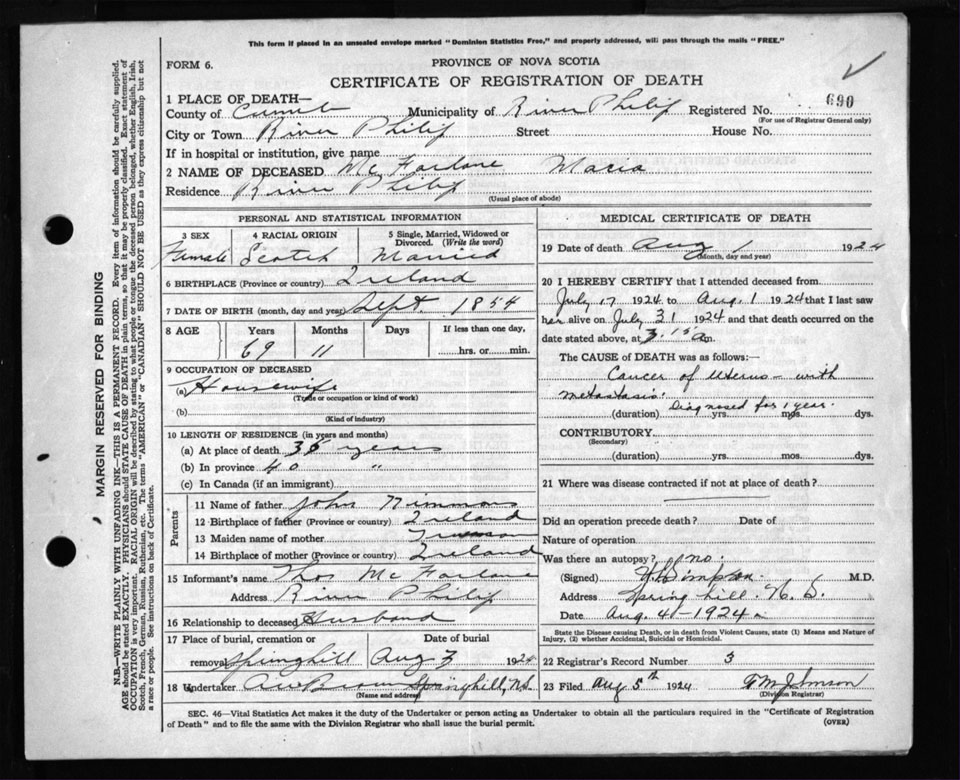 This form if placed in an unsealed envelope marked "Dominion Statistics Free," and properly addressed, will pass through the mails "FREE."
FORM 6.
PROVINCE OF NOVA SCOTIA
CERTIFICATE OF REGISTRATION OF DEATH
1 PLACE OF DEATH—
County of Municipality of River Philip Registered No. 690
(For use of Registrar General only)
City or Town River Philip Street House No.
If in hospital or institution, give name
2 NAME OF DECEASED McFarlane Maria
Residence River Philip
(Usual place of abode)
PERSONAL AND STATISTICAL INFORMATION
3 SEX 4 RACIAL ORIGIN 5 Single, Married, Widowed or Divorced. (Write the word)
Female Scotch Married
6 BIRTHPLACE (Province or country) Ireland
7 DATE OF BIRTH (month, day and year) Sept. 1854
8 AGE Years Months Days If less than one day,
69 11 hrs. or min.
9 OCCUPATION OF DECEASED
(a) Housewife
(Trade or occupation or kind of work)
(b)
(Kind of industry)
10 LENGTH OF RESIDENCE (in years and months)
(a) At place of death 35 years
(b) In province 40 "
(c) In Canada (if an immigrant)
Parents
11 Name of father John Nimmons
12 Birthplace of father (Province or country) Ireland
13 Maiden name of mother
14 Birthplace of mother (Province or country) Ireland
15 Informant's name Thos McFarlane
Address River Philip
16 Relationship to deceased Husband
17 Place of burial, cremation or removal Springhill Date of burial Aug 3 1924
18 Undertaker A W Brown Springhill, N.S.
(Name and address)
MEDICAL CERTIFICATE OF DEATH
19 Date of death Aug 1 1924
(Month, day and year)
20 I HEREBY CERTIFY that I attended deceased from
July 17 1924 to Aug. 1 1924 that I last saw
her alive on July 31 1924 and that death occurred on
date stated above, at 3.15 a m.
The CAUSE of DEATH was as follows:—
Cancer of Uterus – with
metastasis. Diagnosed for 1 year.
(duration) yrs. mos. dys.
CONTRIBUTORY
(Secondary)
(duration) yrs. mos. dys.
21 Where was disease contracted if not at place of death?
Did an operation precede death? Date of
Nature of operation
Was there an autopsy? no.
(Signed) Simpson. M.D.
Address Springhill. N.S.
Date Aug. 4 - 1924
State the Disease causing Death, or in death from Violent Causes, state (1) Means and Nature of
Injury, (2) whether Accidental, Suicidal or Homicidal.
22 Registrar's Record Number 3
23 Filed Aug 5th 1924
(Division Registrar)
SEC. 46—Vital Statistics Act makes it the duty of the Undertaker or person acting as Undertaker to obtain all the particulars required in the "Certificate of Registration
of Death" and to file the same with the Division Registrar who shall issue the burial permit. (OVER)
MARGIN RESERVED FOR BINDING
N.B.—WRITE PLAINLY WITH UNFADING INK—THIS IS A PERMANENT RECORD. Every item of information should be carefully supplied.
AGE should be stated EXACTLY. PHYSICIANS should STATE CAUSE OF DEATH in plain terms, so that it may be properly classified. Exact statement of
OCCUPATION is very important. RACIAL ORIGIN will be described by stating to what people or tongue the deceased person belonged, whether English, Irish,
Scotch, French, German, Russian, Ruthenian, etc. The terms "AMERICAN" or "CANADIAN" SHOULD NOT BE USED as they express citizenship but not
a race or people. See instructions on back of Certificate.